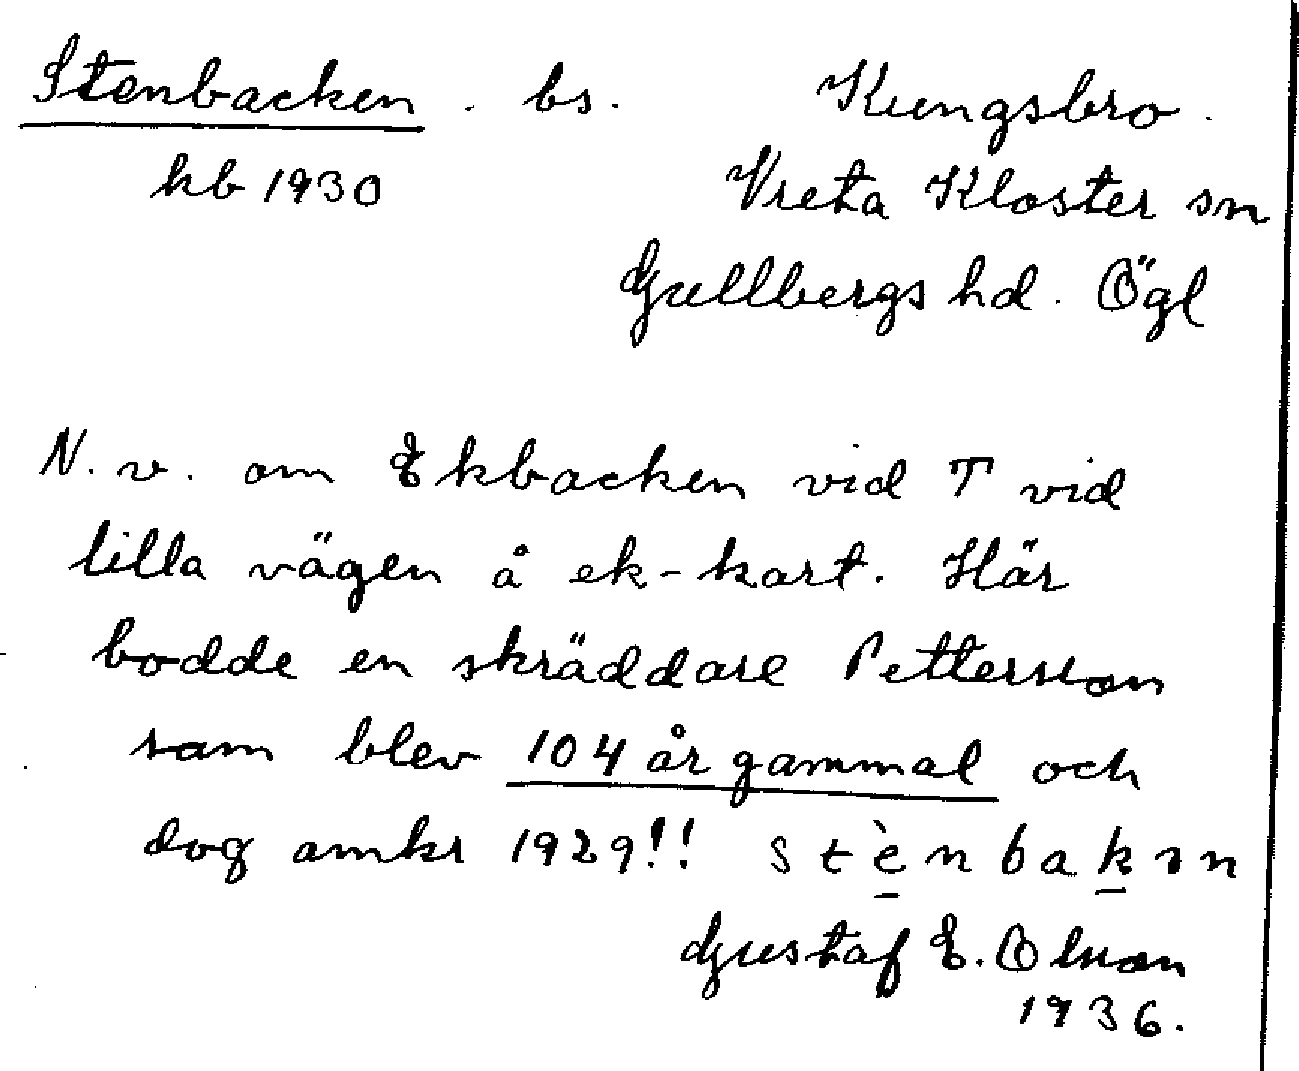 Stenbacken. bs. Kungsbro.
kb 1930 Vreta Kloster sn
Gullbergs hd. Ögl
N. v. om Ekbacken vid T vid
lilla vägen å ek-kart. Här
bodde en skräddare Pettersson
som blev 104 år gammal och
dog omkr 1929!! stὲnbakɘn
Gustaf E. Olsson
1936.